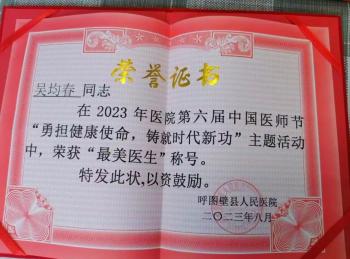 荣誉证书
吴均春 同志
在 2023 年医院第六届中国医师节
“勇担健康使命，铸就时代新功”主题活动
中，荣获“最美医生”称号。
特发此状，以资鼓励。
呼图壁县人民医院
二〇二三年八月